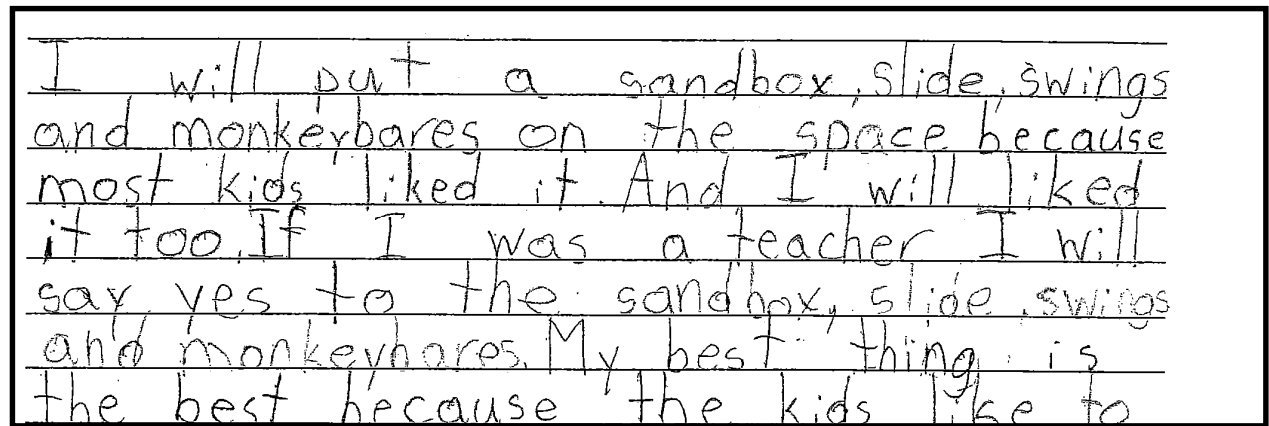 I will put a sandbox, slide, swings
and monkeybares on the space because
most kids liked it. And I will liked
it too. If I was a teacher I will
say yes to the sandbox, slide, swings
and monkeybares. My best thing is
the best because the kids like to